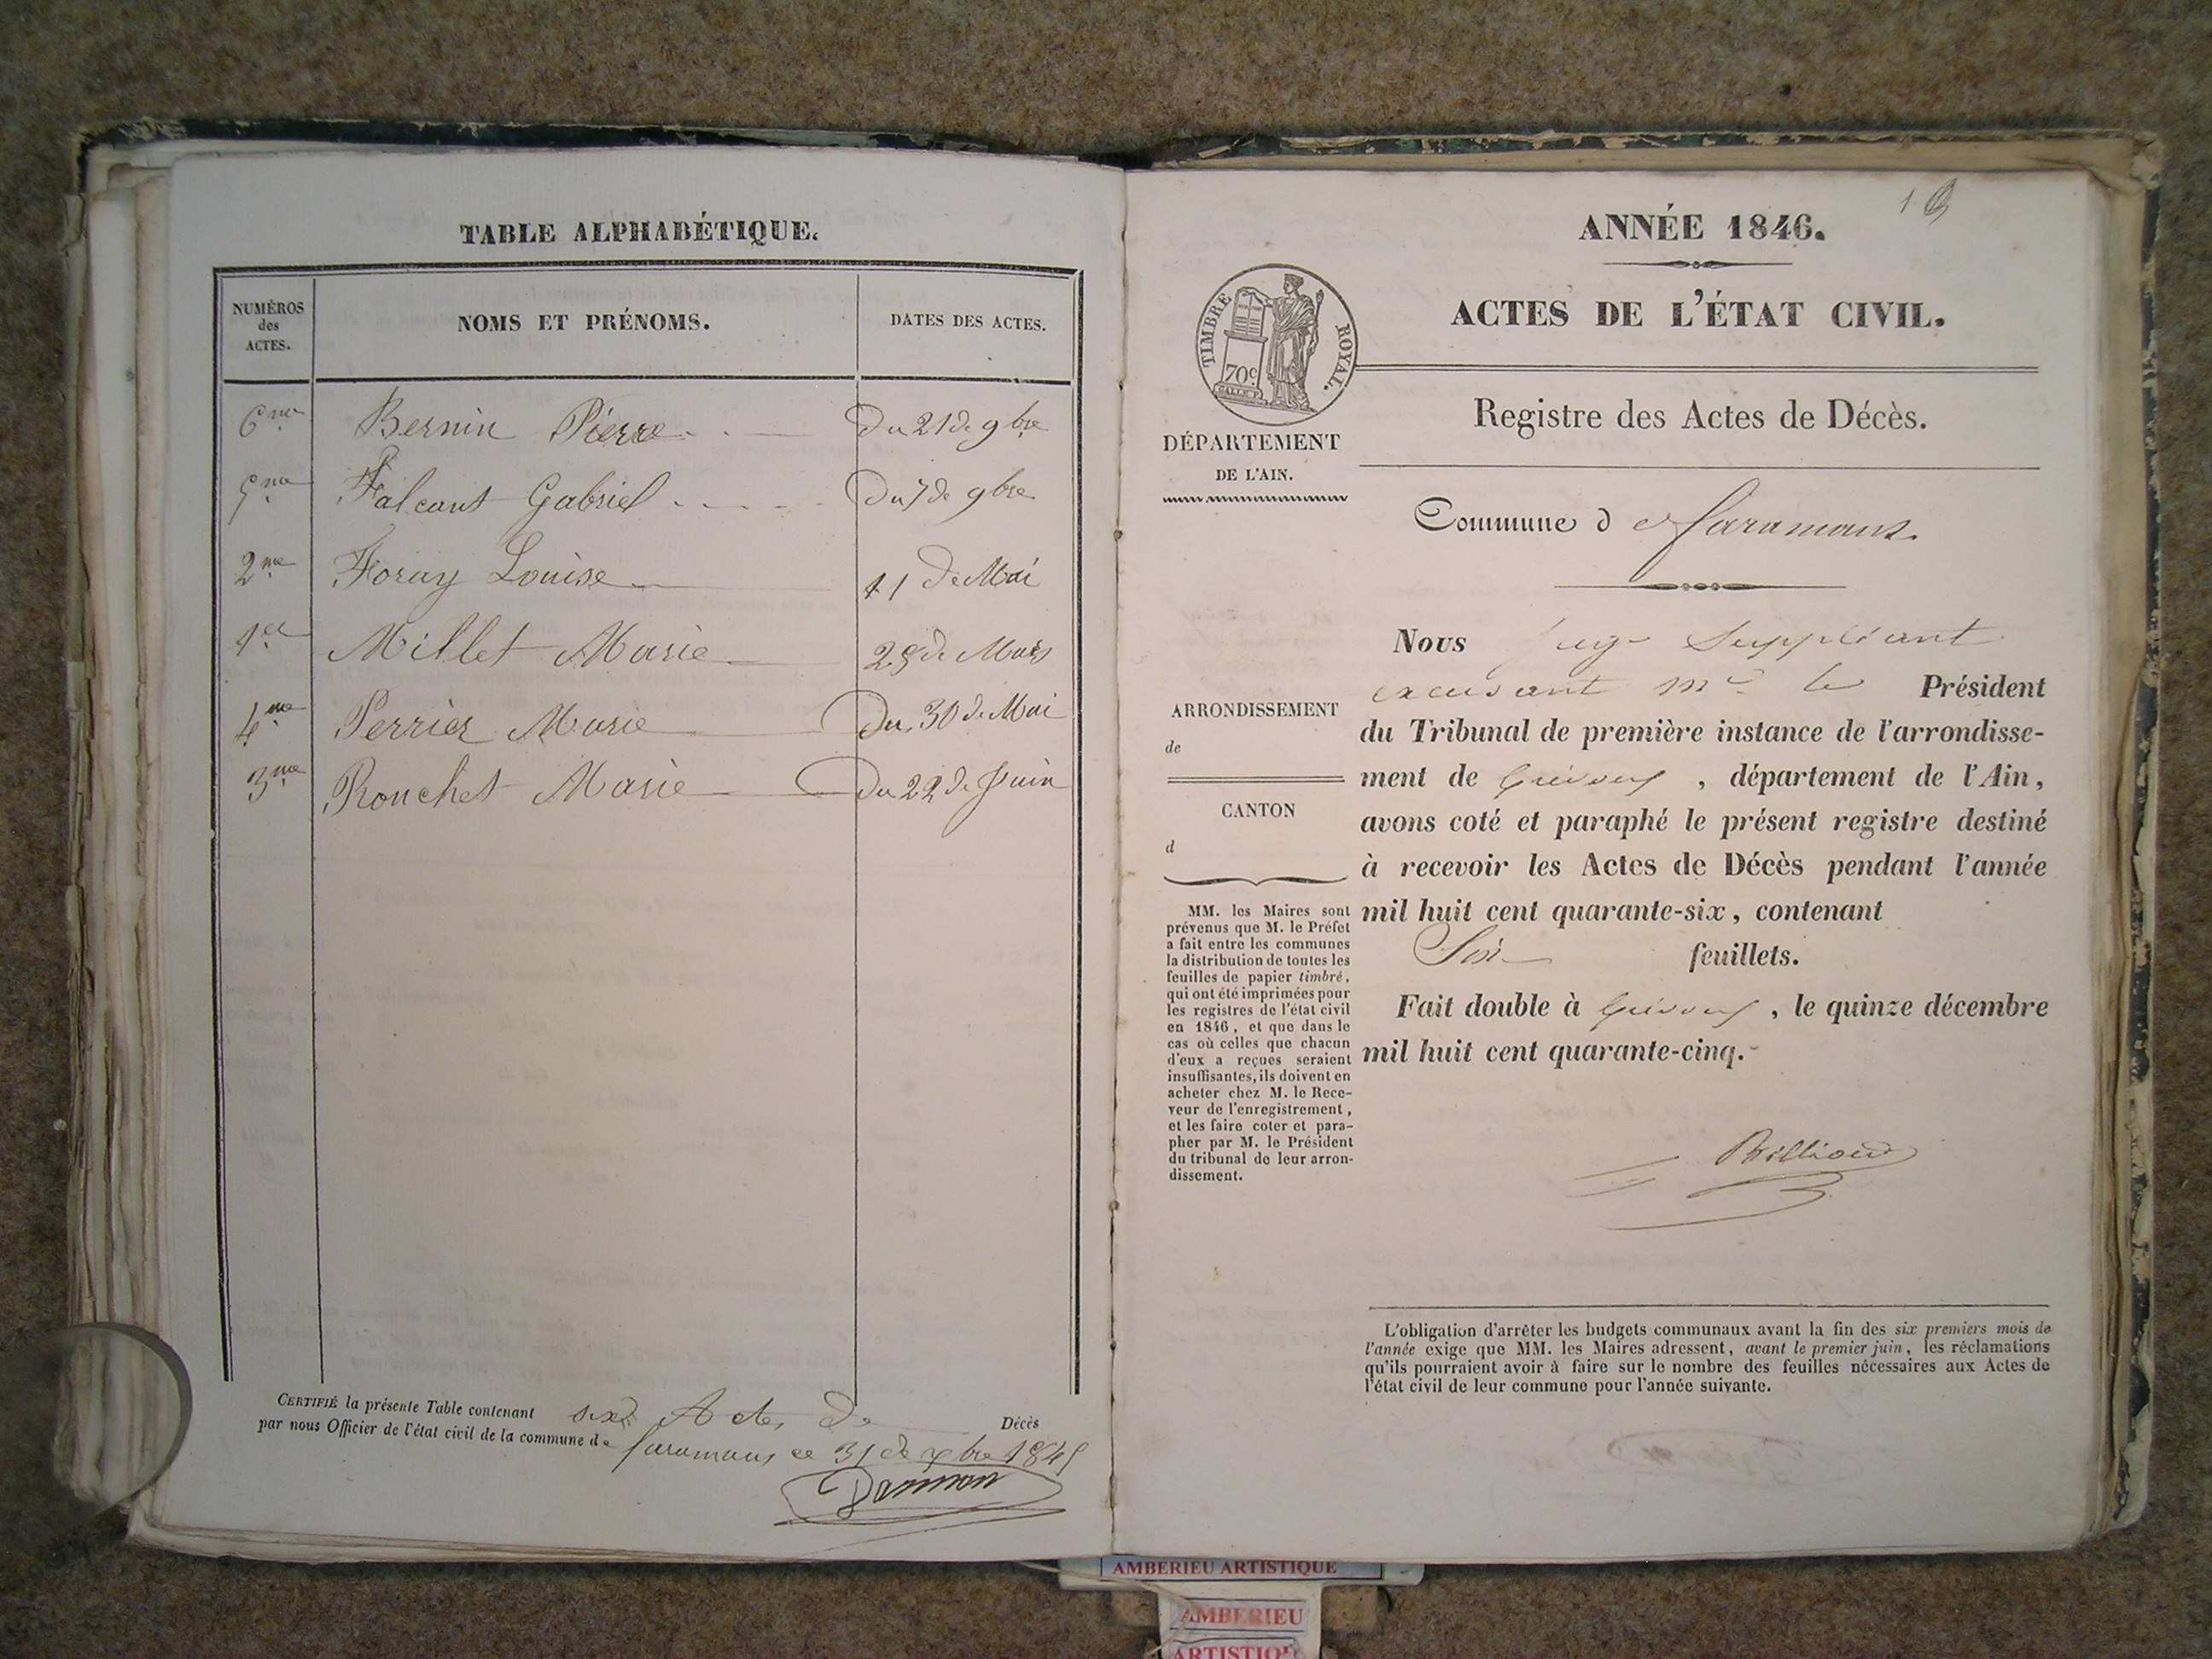 TABLE ALPHABÉTIQUE.
NUMÉROS
des
ACTES.
NOMS ET PRÉNOMS.
DATES DES ACTES.
6me Bernin Pierre Du 21 de 9bre
5me Falcant Gabriel Du 7 de 9bre
2me Foray Louise 11 De Mai
1er Millet Marie 28 de Mars
4me Perrier Marie Du 30 de Mai
3me Ronchet Marie Du 22 de Juin
CERTIFIÉ la présente Table contenant six Actes de Décès
par nous Officier de l'état civil de la commune de faramans ce 31 de xbre 1845
1
ANNÉE 1846.
ACTES DE L'ÉTAT CIVIL.
TIMBRE ROYAL.
70c
Registre des Actes de Décès.
DÉPARTEMENT
DE L'AIN.
Commune de faramans.
Nous juge Suppléant
excusant mr le Président
du Tribunal de première instance de l'arrondisse-
ment de Trévoux, département de l'Ain,
avons coté et paraphé le présent registre destiné
à recevoir les Actes de Décès pendant l'année
mil huit cent quarante-six, contenant
Six feuillets.
Fait double à Trévoux, le quinze décembre
mil huit cent quarante-cinq.
ARRONDISSEMENT
de
CANTON
d
MM. les Maires sont
prévenus que M. le Préfet
a fait entre les communes
la distribution de toutes les
feuilles de papier timbré,
qui ont été imprimées pour
les registres de l'état civil
en 1846, et que dans le
cas où celles que chacun
d'eux a reçues seraient
insuffisantes, ils doivent en
acheter chez M. le Rece-
veur de l'enregistrement,
et les faire coter et para-
pher par M. le Président
du tribunal de leur arron-
dissement.
L'obligation d'arrêter les budgets communaux avant la fin des six premiers mois de
l'année exige que MM. les Maires adressent, avant le premier juin, les réclamations
qu'ils pourraient avoir à faire sur le nombre des feuilles nécessaires aux Actes de
l'état civil de leur commune pour l'année suivante.
AMBERIEU ARTISTIQUE
AMBERIEU